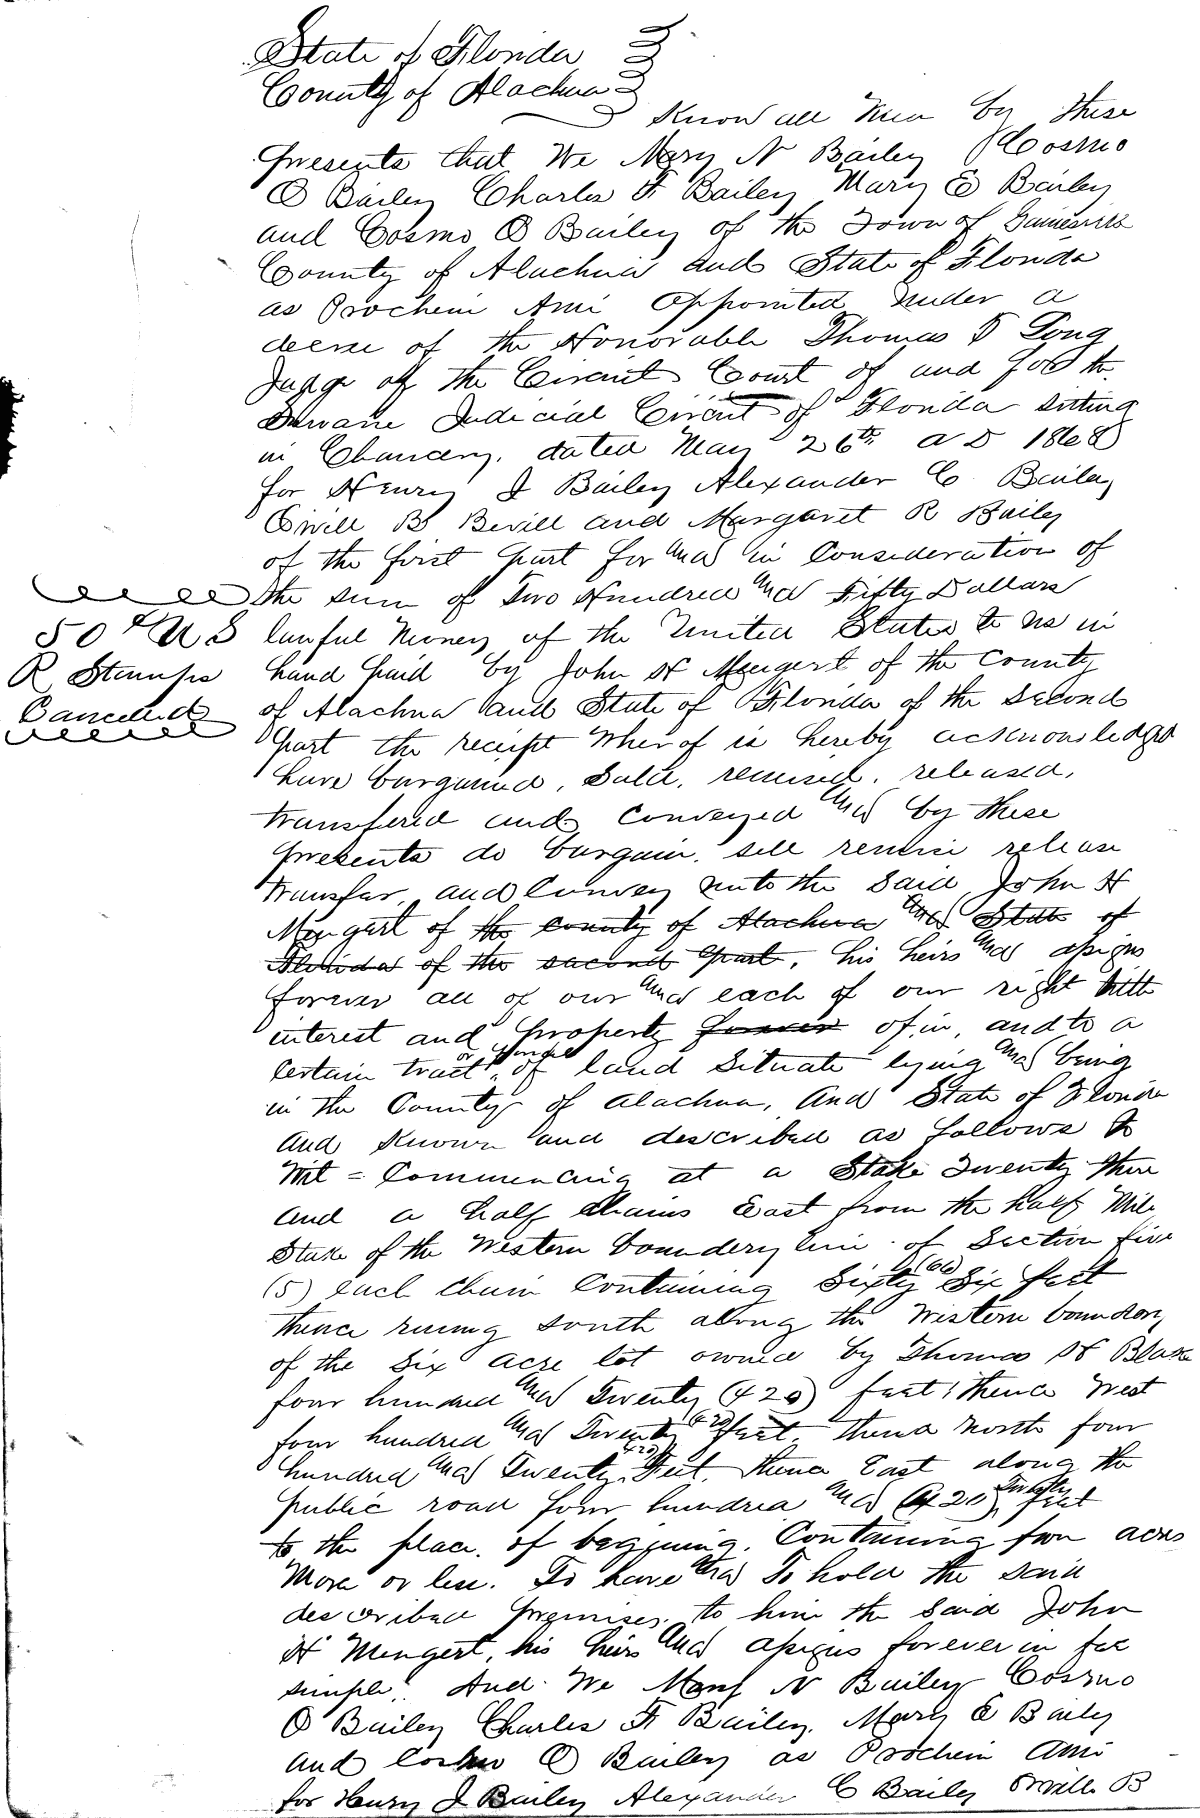 State of Florida
County of Alachua
Know all Men by these
presents that We Mary N Bailey Cosmo
O Bailey Charles F Bailey Mary E Bailey
and Cosmo O Bailey of the Town of Gainesville
County of Alachua and State of Florida
as Prochein Ami appointed under a
decree of the Honorable Thomas T Long
Judge of the Circuit Court of and for the
Suwane Judicial Circuit of Florida sitting
in Chancery. dated May 26th AD 1868
for Henry J Bailey Alexander C Bailey
Orvill B Bevill and Margaret R Bailey
of the first part for and in Consideration of
the sum of Two Hundred and Fifty Dollars
50 c U S
R Stamps
Cancelled
lawful Money of the United States to us in
hand paid by John H Mengert of the County
of Alachua and State of Florida of the second
part the receipt Wherof is hereby acknowledged
have bargained, Sold, remised, released,
transfered and Conveyed and by these
presents do bargain, sell remise release
transfer, and Convey unto the Said John H
Mengert of the County of Alachua and State of
Florida of the second part, his heirs and assigns
forever all of our and each of our right title
interest and property forever of, in, and to a
Certain tract or parcel of land Situate lying and being
in the County of Alachua, And State of Florida
and Known and described as follows to
Wit = Commencing at a Stake Twenty three
and a half Chains East from the half Mile
Stake of the Western boundery line of Section five
(5) each chain Containing Sixty Six (66) feet
thence runing south along the Western boundary
of the Six acre lot owned by Thomas H Blake
four hundred and Twenty (420) feet; thence West
four hundred and Twenty (420) feet, thence North four
hundred and Twenty (420) Feet, thence East along the
public road four hundred and Twenty (420) feet
to the place of begining. Containing four acres
More or less. To have and To hold the said
described premises, to him the Said John
H Mengert, his heirs and assigns forever in fee
simple. And We Mary N Bailey Cosmo
O Bailey Charles F Bailey, Mary E Baily
and Cosmo O Bailey as Prochein Ami
for Henry J Bailey Alexander C Baily Orville B